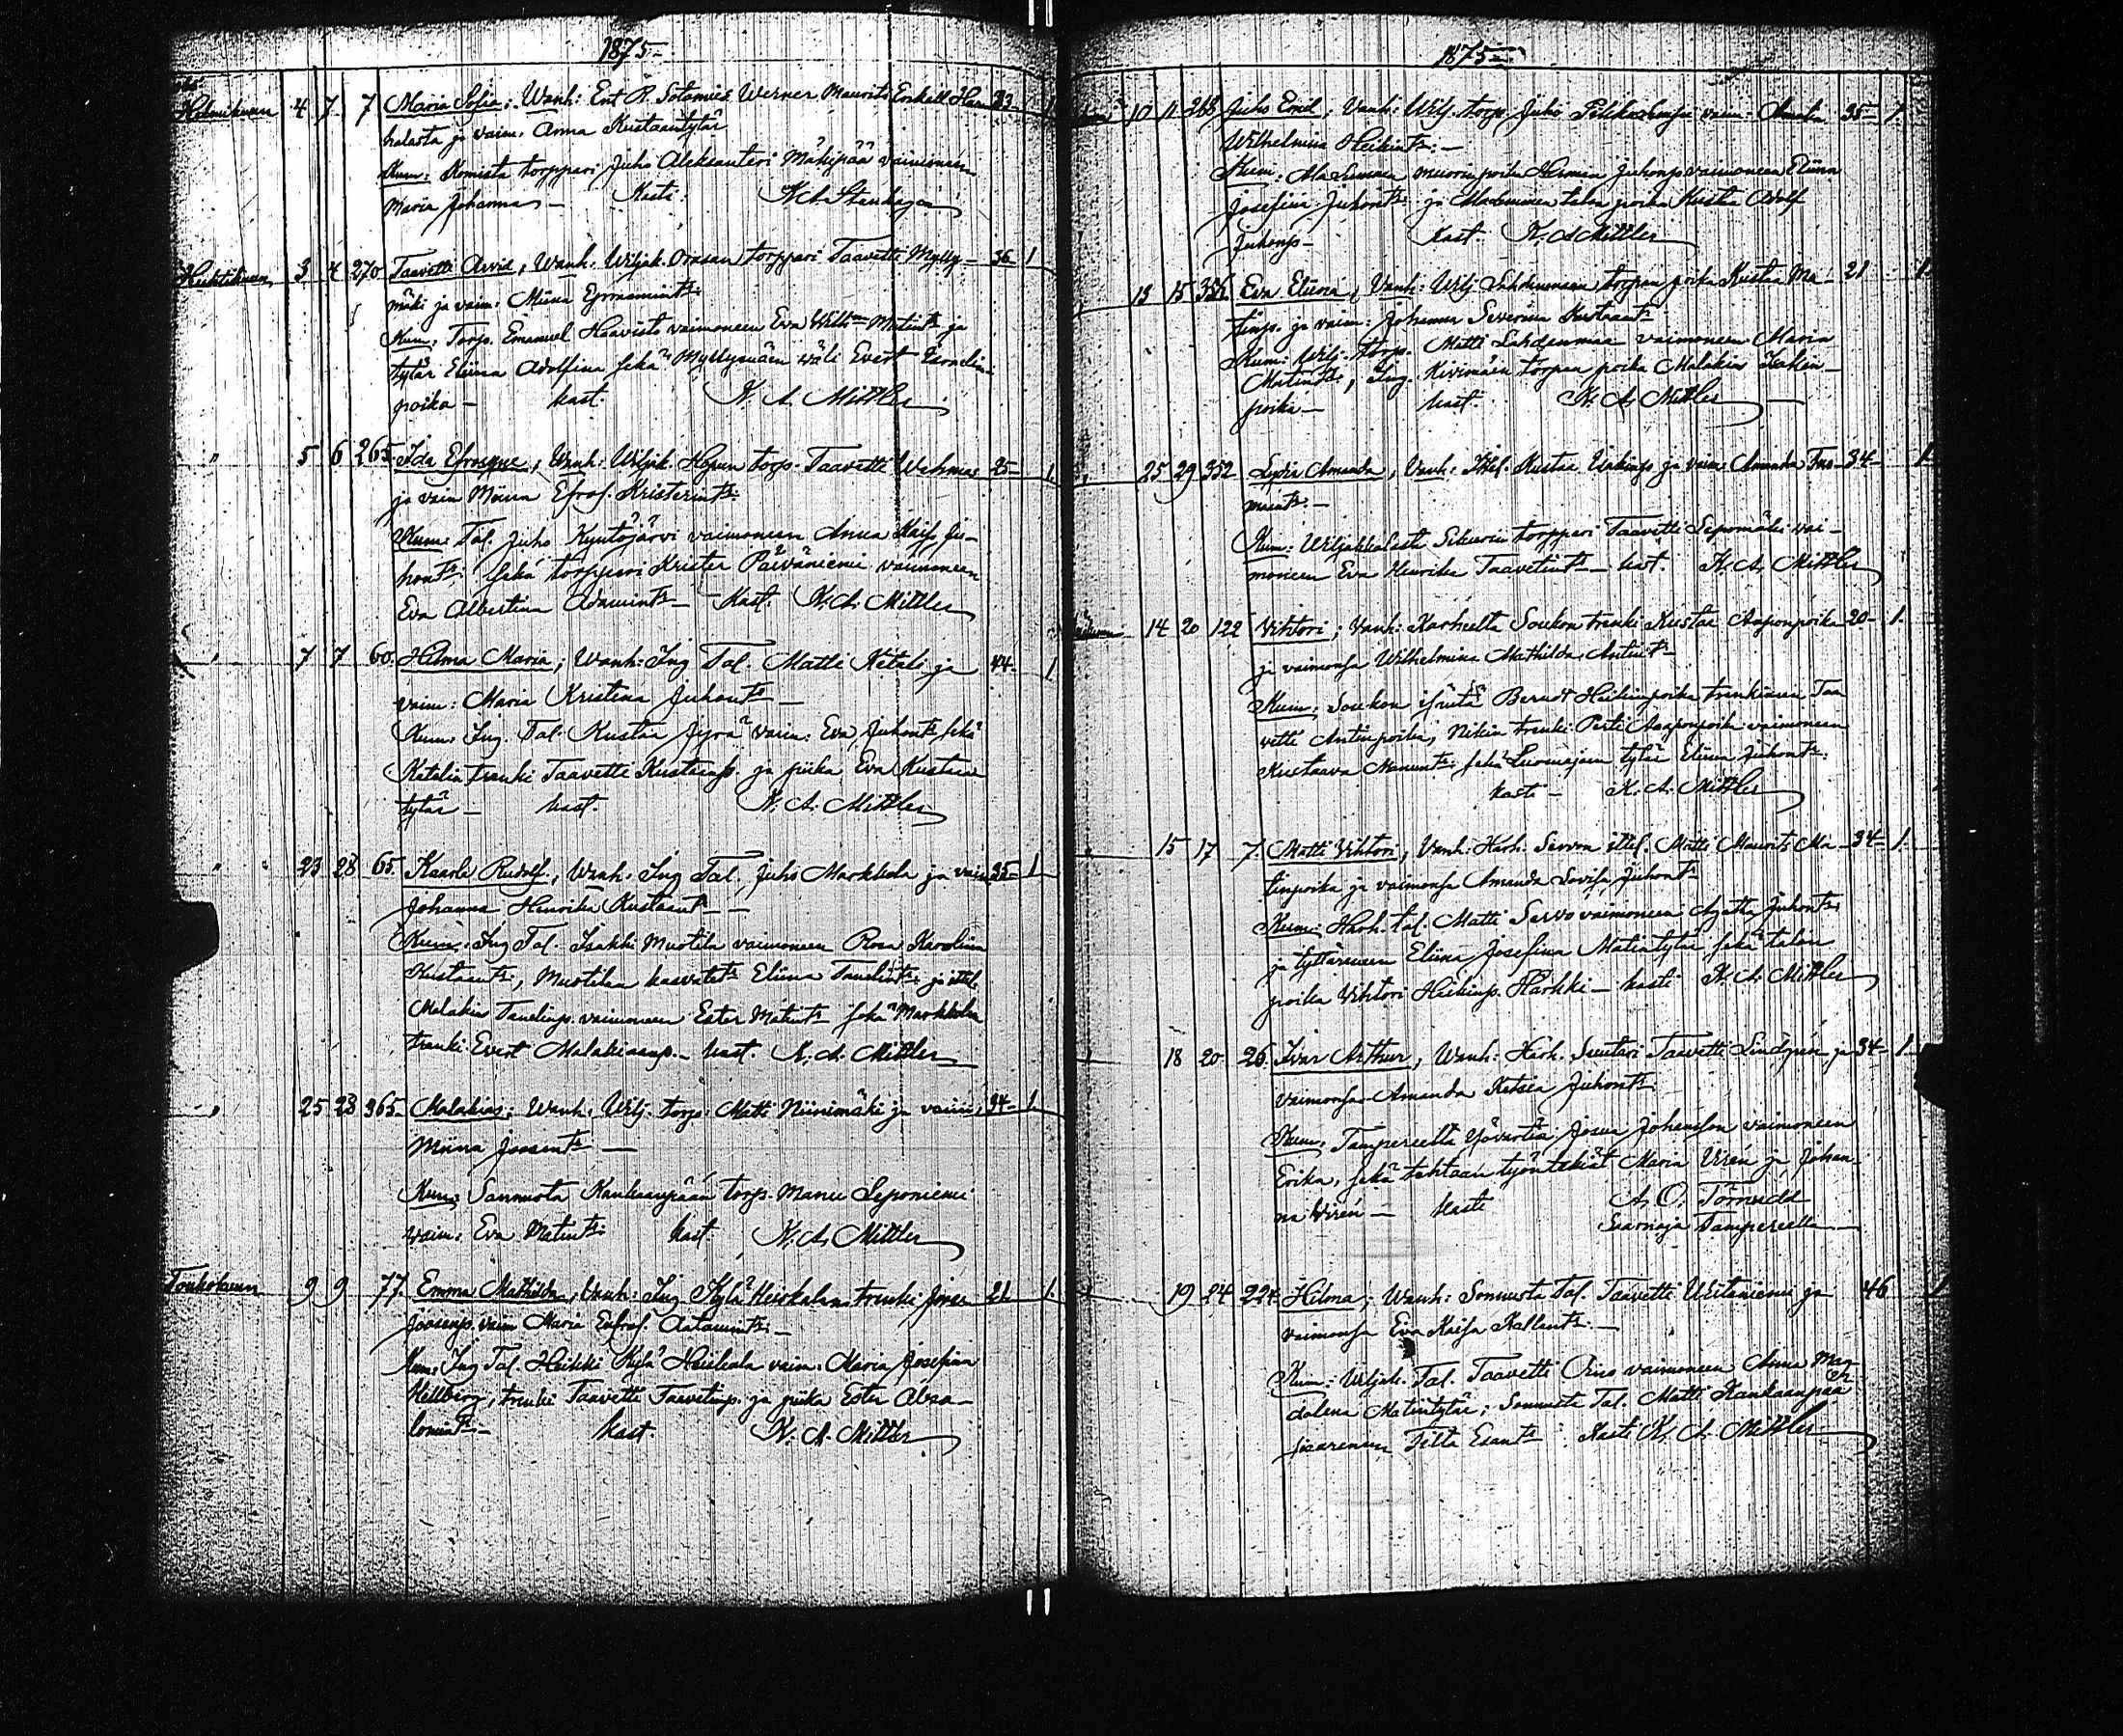 1875
Helmikuun 4 7 7 Maria Sofia; Wanh: Ent. R. Sotamies Werner Maurits Enkell 33 1
halasta ja vaim. Anna Kustaantytär
Kum: torppari Juho Aleksanteri Mäkipää vaimoneen
Maria Johanna — Kasti:
Huhtikuun 3 4 270 Taavetti Arvid, Wanh. Wiljak. torppari Taavetti Mylly- 36 1
mäki ja vaim. Miina
Kum. Torp. Emanuel Haavisto vaimoneen Eva Matint: ja
tytär Eliina Adolfina sekä väli Evert
poika — kast. K. A. Mittler
" 5 6 265 Ida Efrosyne, Wanh: Wiljak. torp. Taavetti Wehmas 25 1
ja vaim Miina Efros. Kristerint:
Kum: Tal. Juho Kyntöjärvi vaimoneen Anna Kaisa Ju-
hont: sekä torppari Krister Päiväniemi vaimoneen
Eva Albertina Adamint: — Kast. K. A. Mittler
" 7 7 60 Hilma Maria; Wanh: Ing Tal. Matti Ketala ja 44 1
vaim: Maria Kristina Juhont: —
Kum: Ing. Tal. Kustaa Jyrä vaim: Eva Juhont: sekä
Ketalan trenki Taavetti Kustaanp. ja piika Eva Kustaan
tytär — kast. K. A. Mittler
" 23 28 65 Kaarle Rudolf, Wanh. Ing Tal. Juho Markkola ja vaim 35 1
Johanna Henrika Kustaant: —
Kum: Ing Tal. Isakki Muotila vaimoneen Rosa Karolina
Kustaant:, Muotilan kasvatat: Eliina Tanelint: ja ittel.
Malakias Tanelinp. vaimoneen Ester Matint: sekä Markkolan
trenki Evert Malakiaanp. — kast. K. A. Mittler
" 25 28 365 Malakias; Wanh. Wilj. torp. Matti Niinimäki ja vaim. 34 1
Miina Joosent: —
Kum: Sammusta Kankaanpään torp. Manu Leponiemi
vaim: Eva Matint: kast. K. A. Mittler
Toukokuun 9 9 77 Emma Mathilda, Wanh: Ing Kylä Heiskalan trenki Joose 21 1
Joosenp. vaim Maria Eufros. Aatamint: —
Kum: Ing Tal. Heikki Kylä Heiskala vaim. Maria Josefina
Hellberg, trenki Taavetti Taavetinp. ja piika Ester Absa-
lomint: — Kast. K. A. Mittler
1875
10 11 Juho Emil, Vanh: Wilj. torp. Juho vaim. Amanda 35 1
Wilhelmina Heikint: —
Kum: poika Herman Juhonp vaimoneen Eliina
Josefina Juhont: ja talon poika Kustaa Adolf
Juhonp — Kast. K. A. Mittler
13 15 356 Eva Eliina, Vanh: Wilj torpan poika Kustaa Ma- 21 1
tinp. ja vaim: Johanna Severina Kustaant:
Kum: Wilj. Torp. Matti Lahdenmaa vaimoneen Maria
Matint:, Ing. Kivimäen torpan poika Malakias Isakin-
poika — kast. K. A. Mittler
25 29 352 Lydia Amanda, Vanh: Ittel. Kustaa ja vaim Amanda 34 1
maint: —
Kum: Wiljakkalasta torppari Taavetti Lepomäki vai-
moneen Eva Henrika Taavetint: — kast. K. A. Mittler
14 20 122 Vihtori; Vanh: Karheelta Soukon trenki Kustaa Aaponpoika 20 1
ja vaimonsa Wilhelmina Mathilda Antint: —
Kum: Soukon isäntä Berndt Heikinpoika trenkineen Taa
vetti Antinpoika, trenki Pertti Aaponpoika vaimoneen
Kustaava Manunt: sekä tytär Eliina Juhont:
kasti — K. A. Mittler
15 17 7 Matti Vihtori, Vanh: Karh. Servon ittel. Matti Maurits Ma- 34 1
tinpoika ja vaimonsa Amanda Lovisa Juhont:
Kum: Karh. tal. Matti Servo vaimoneen Agatha Juhont:
ja tyttärineen Eliina Josefina Matintytär sekä talon
poika Vihtori Heikinp. Harkki — kasti K. A. Mittler
18 20 26 Ivar Arthur, Wanh: Karh. Suutari Taavetti Lindgren ja 34 1
vaimonsa Amanda Juhont:
Kum: Tampereelta Yövartia Josua Johansson vaimoneen
Erika, sekä tehtaan työn tekiät Maria Virén ja Johan-
na Wirén — kasti A. O. Törnudd
Saarnaja Tampereella —
19 24 224 Hilma; Wanh: Sammusta Tal. Taavetti Uitaniemi ja 46 1
vaimonsa Eva Kaisa Kallent: —
Kum: Wiljak. Tal. Taavetti vaimoneen Anna Mag-
dalena Matintytär; Sammusta Tal. Matti Kankaanpää
sisarineen Tilta Esant: Kasti K. A. Mittler